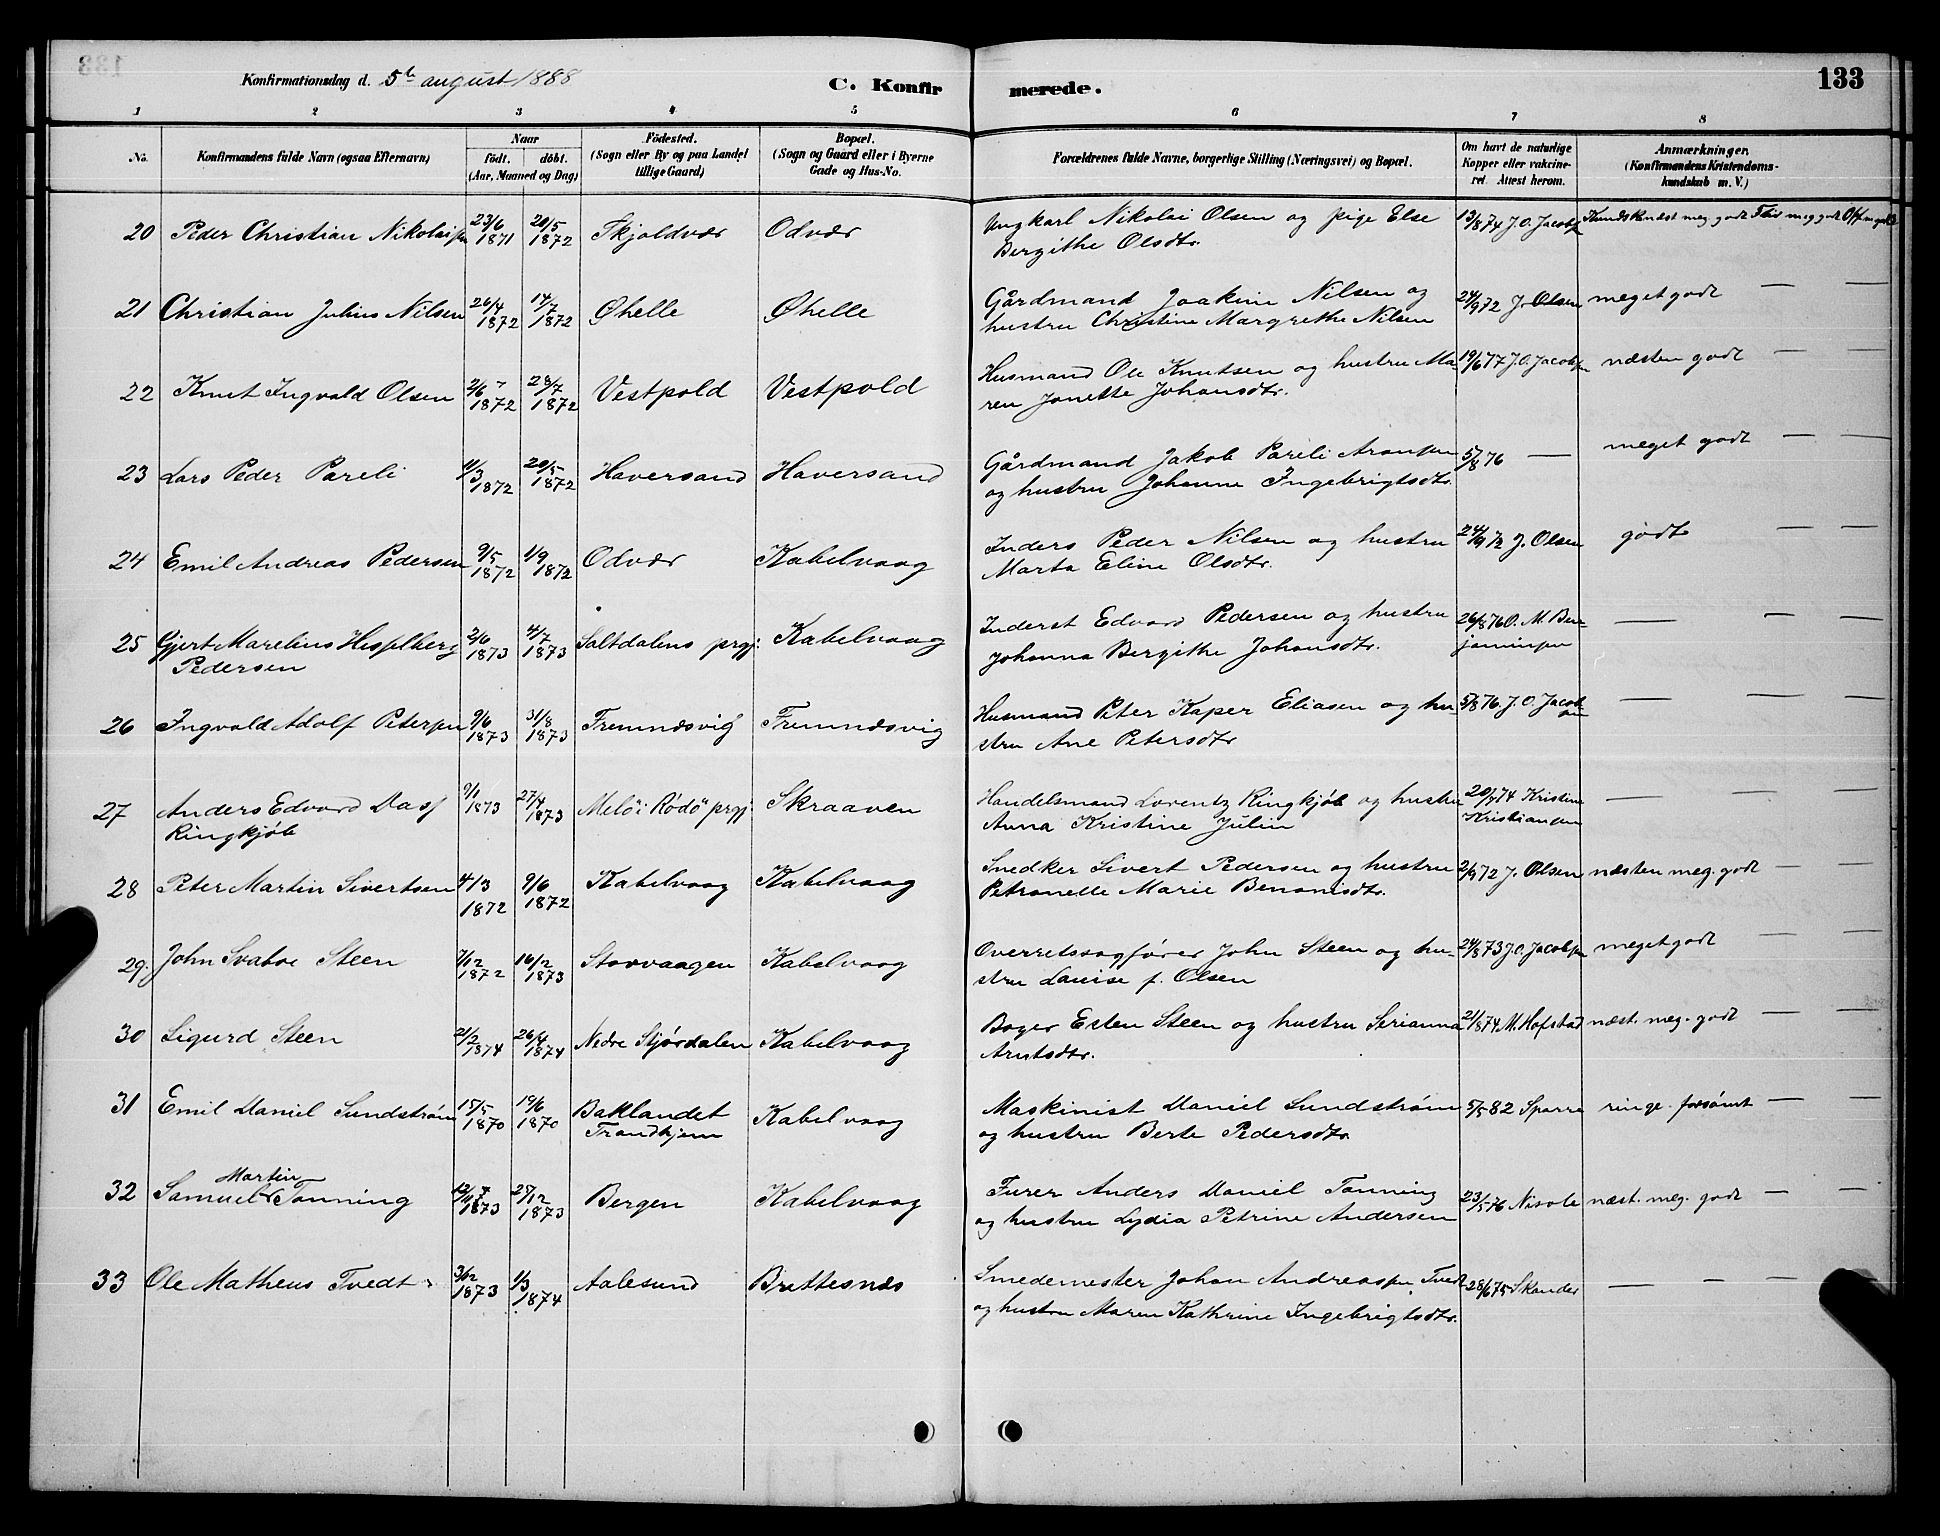 Konfirmationsdag d. 5te august 1888
C. Konfirmerede.
133
1 2 3 4 5 6 7 8
No. Konfirmandens fulde Navn (ogsaa Efternavn) Naar födt. döbt. (Aar, Maaned og Dag) Födested. (Sogn eller By og paa Landet tillige Gaard) Bopæl. (Sogn og Gaard eller i Byerne Gade og Hus-No. Forældrenes fulde Navne, borgerlige Stilling (Næringsvei) og Bopæl. Om havt de naturlige Kopper eller vakcineret. Attest herom. Anmærkninger. (Konfirmandens Kristendomskundskab m. V.)
20 Peder Christian Nikolaisen 23/6 1871 20/5 1872 Skjoldvær Odvær Ungkarl Nikolai Olsen og pige Else 13/8 74 J. O. Jacobsen
Bergithe Olsdtr.
21 Christian Julius Nilsen 26/4 1872 14/7 1872 Ørhelle Øhelle Gårdmand Joakim Nilsen og 24/9 72 J. Olsen meget godt — —
hustru Christine Margrethe Nilsen
22 Knut Ingvald Olsen 2/6 1872 28/7 1872 Vestpold Vestpold Husmand Ole Knutsen og hustru Ma- 19/6 77 J. O. Jacobsen næsten godt — —
ren Jonette Johansdtr.
23 Lars Peder Pareli 11/3 1872 20/5 1872 Haversand Haversand Gårdmand Jakob Pareli Aronsen 5/8 76 — meget godt — —
og hustru Johanne Ingebrigtsdtr.
24 Emil Andreas Pedersen 9/5 1872 1/9 1872 Odvær Kabelvaag Inders Peder Nilsen og hustru 24/9 72 J. Olsen godt — —
Marta Eline Olsdtr.
25 Gjert Marelius Hesselberg 2/6 1873 4/7 1873 Saltdalens prgj. Kabelvaag Inderst Edvard Pedersen og hustru 26/8 76 O. M Ben-
Pedersen Johanna Bergithe Johansdtr. jaminsen — — —
26 Ingvald Adolf Petersen 9/6 1873 31/8 1873 Fremnæsvig Fremnæsvig Husmand Peter Kasper Eliasen og hu- 5/8 76 J. O. Jacobsen — — —
stru Ane Petersdtr
27 Anders Edvard Dass 9/1 1873 27/4 1873 Melö i Rödö prgj. Skraaven Handelsmand Lorentz Ringkjöb og hustru 20/7 74 Kristine
Ringkjöb Anna Kristine Julin Kristiansen — — —
28 Peter Martin Sivertsen 4/3 1872 9/6 1872 Kabelvaag Kabelvaag Snedker Sivert Pedersen og hustru 2/9 72 J. Olsen næsten meg. godt — —
Petronelle Marie Benonisdtr.
29. John Svaboe Steen 7/12 1872 16/2 1873 Storvaagen Kabelvaag Overretssagfører John Steen og hu- 24/8 73 J. O. Jacobsen meget godt — —
stru Louise f. Olsen
30 Sigurd Steen 21/2 1874 26/4 1874 Nedre Stjørdalen Kabelvaag Bager Esten Steen og hustru Serianna 21/8 74 M. Hofstad næst. meg. godt — —
Arntsdtr.
31 Emil Daniel Sundstrøm 15/5 1870 19/6 1870 Baklandet Kabelvaag Maskinist Daniel Sundstrøm 5/5 82 Sparre ringe. forsömt — —
Trondhjem og hustru Berte Pedersdtr.
32 Samuel Martin Tonning 12/4 1873 25/12 1873 Bergen Kabelvaag Furer Anders Daniel Tonning 23/5 76 næst. meg. godt — —
og hustru Lydia Petrine Andersen
33 Ole Matheus Tvedt 3/12 1873 1/3 1874 Aalesund Brettesnæs Smedemester Johan Andreassen Tvedt 28/6 75 Skander — — —
og hustru Maren Kathrine Ingebrigtsdtr.